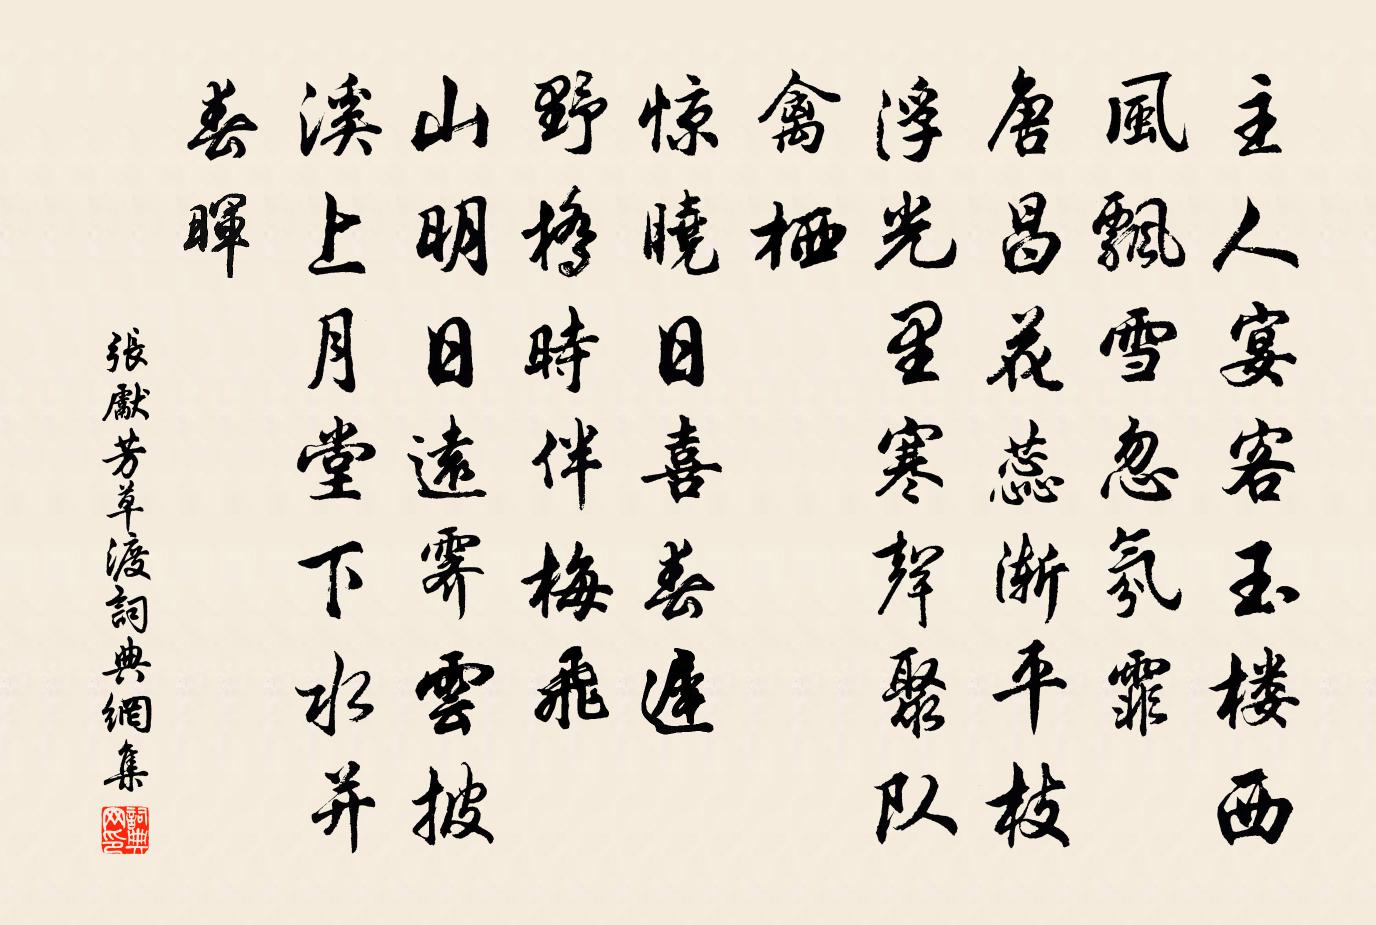 主人宴客玉楼西
風飄雪忽氛霏
唐昌花蕊渐平枝
浮光里寒聲聚队
禽栖
惊曉日喜春遲
野橋時伴梅飛
山明日遠霽雲披
溪上月堂下水并
春暉
張獻芳草渡詞典網集
詞典网印